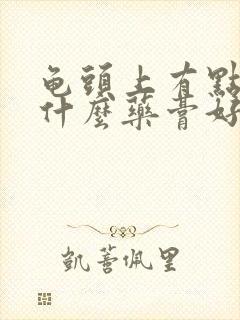 龟頭上有點
什麼藥膏好
凱蕾佩里